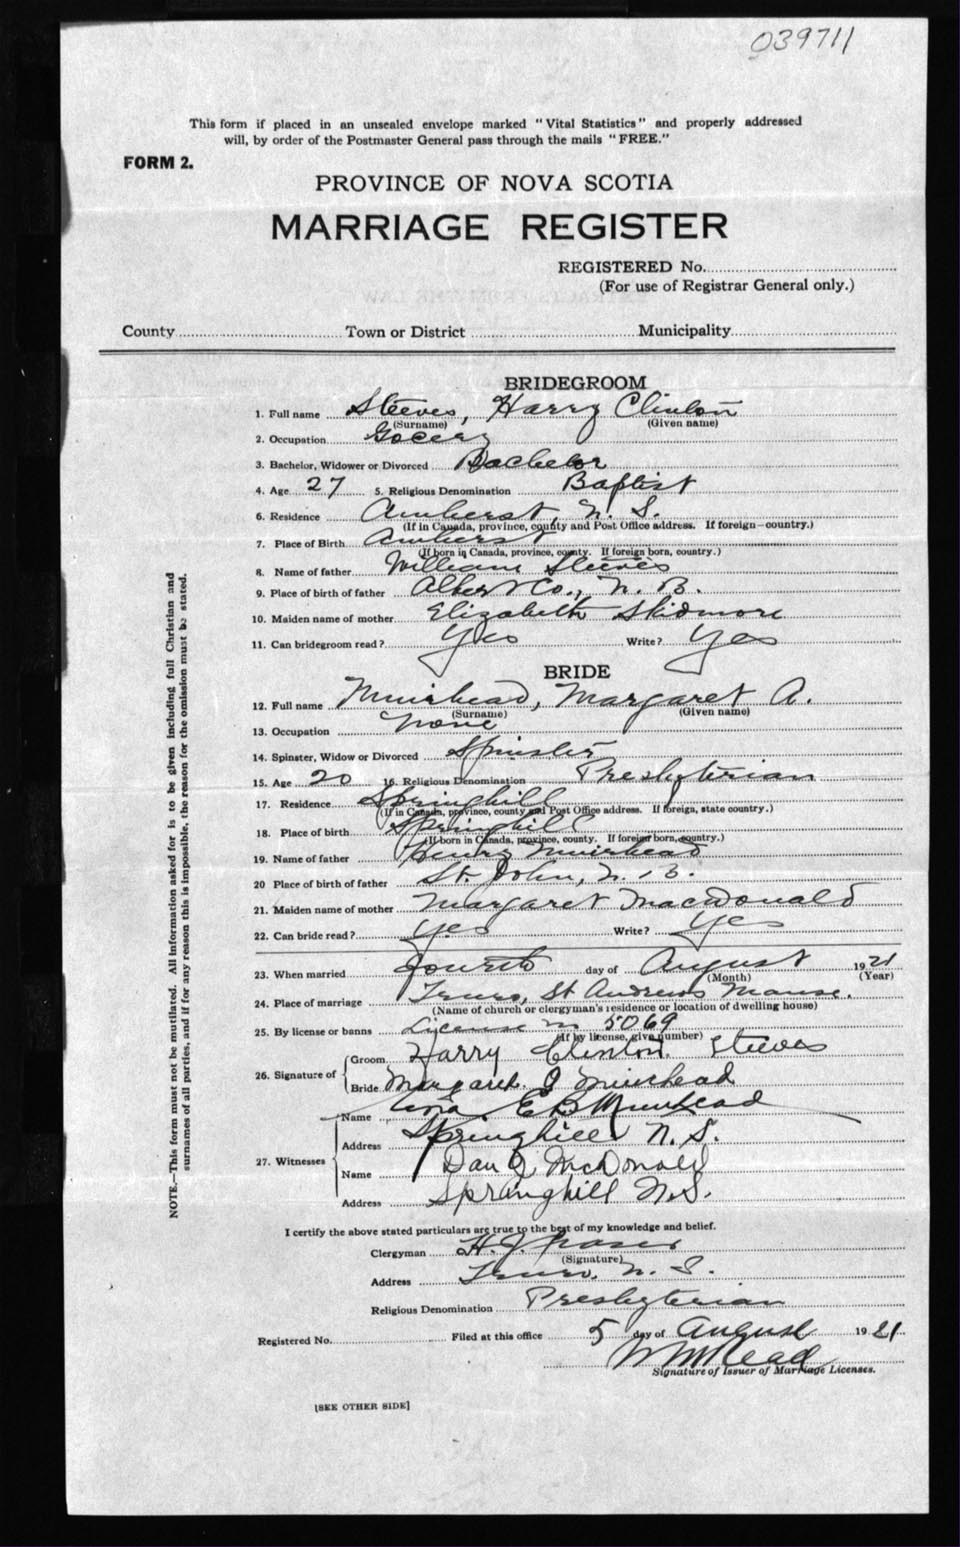 039711
This form if placed in an unsealed envelope marked "Vital Statistics" and properly addressed
will, by order of the Postmaster General pass through the mails "FREE."
FORM 2.
PROVINCE OF NOVA SCOTIA
MARRIAGE REGISTER
REGISTERED No.
(For use of Registrar General only.)
County Town or District Municipality
BRIDEGROOM
1. Full name Steeves, Harry Clinton
(Surname) (Given name)
2. Occupation Gocery
3. Bachelor, Widower or Divorced Bachelor
4. Age 27 5. Religious Denomination Baptist
6. Residence Amherst, N. S.
(If in Canada, province, county and Post Office address. If foreign—country.)
7. Place of Birth Amherst
(If born in Canada, province, county. If foreign born, country.)
8. Name of father William Steeves
9. Place of birth of father Albert Co., N. B.
10. Maiden name of mother Elizabeth Skidmore
11. Can bridegroom read? Yes Write? Yes
BRIDE
12. Full name Muirhead, Margaret A.
(Surname) (Given name)
13. Occupation None
14. Spinster, Widow or Divorced Spinster
15. Age 20 16. Religious Denomination Presbyterian
17. Residence Springhill
(If in Canada, province, county and Post Office address. If foreign, state country.)
18. Place of birth Springhill
(If born in Canada, province, county. If foreign born, country.)
19. Name of father Henry Muirhead
20 Place of birth of father St. John, N. B.
21. Maiden name of mother Margaret MacDonald
22. Can bride read? Yes Write? Yes
23. When married Fourth day of August 1921
(Month) (Year)
24. Place of marriage Truro, St Andrews Manse.
(Name of church or clergyman's residence or location of dwelling house)
25. By license or banns License no 5069
(If by license, give number)
26. Signature of
Groom Harry Clinton Steeves
Bride Margaret J Muirhead
27. Witnesses
Name E B Muirhead
Address Springhill N. S.
Name Dan J McDonald
Address Springhill N.S.
I certify the above stated particulars are true to the best of my knowledge and belief.
Clergyman H. J. Fraser
(Signature)
Address Truro, N. S.
Religious Denomination Presbyterian
Registered No. Filed at this office 5 day of August 1921
Signature of Issuer of Marriage Licenses.
[SEE OTHER SIDE]
NOTE.—This form must not be mutilated. All information asked for is to be given including full Christian and
surnames of all parties, and if for any reason this is impossible, the reason for the omission must be stated.